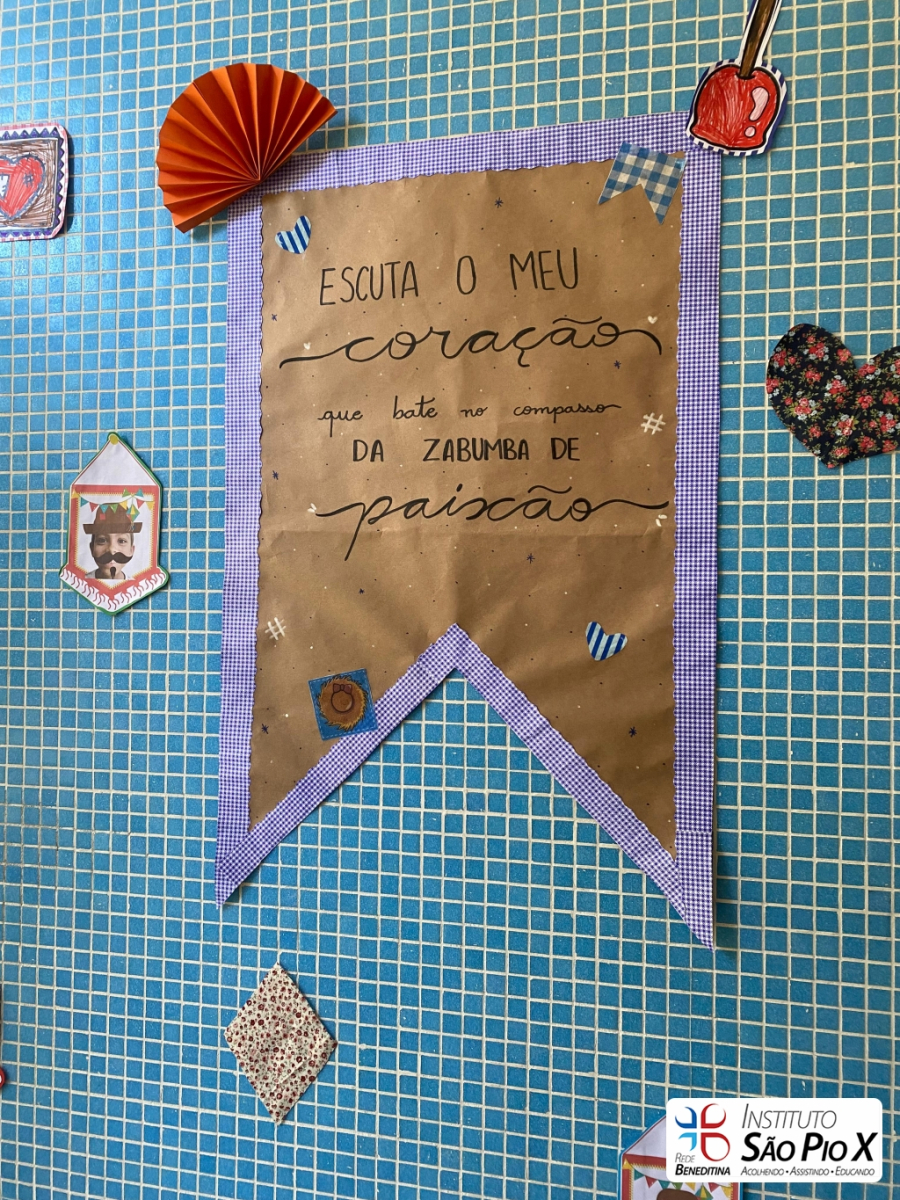 ESCUTA O MEU
coração
que bate no compasso
DA ZABUMBA DE
paixão
#
#
INSTITUTO
SÃO PIO X
REDE
BENEDITINA
ACOLHENDO • ASSISTINDO • EDUCANDO